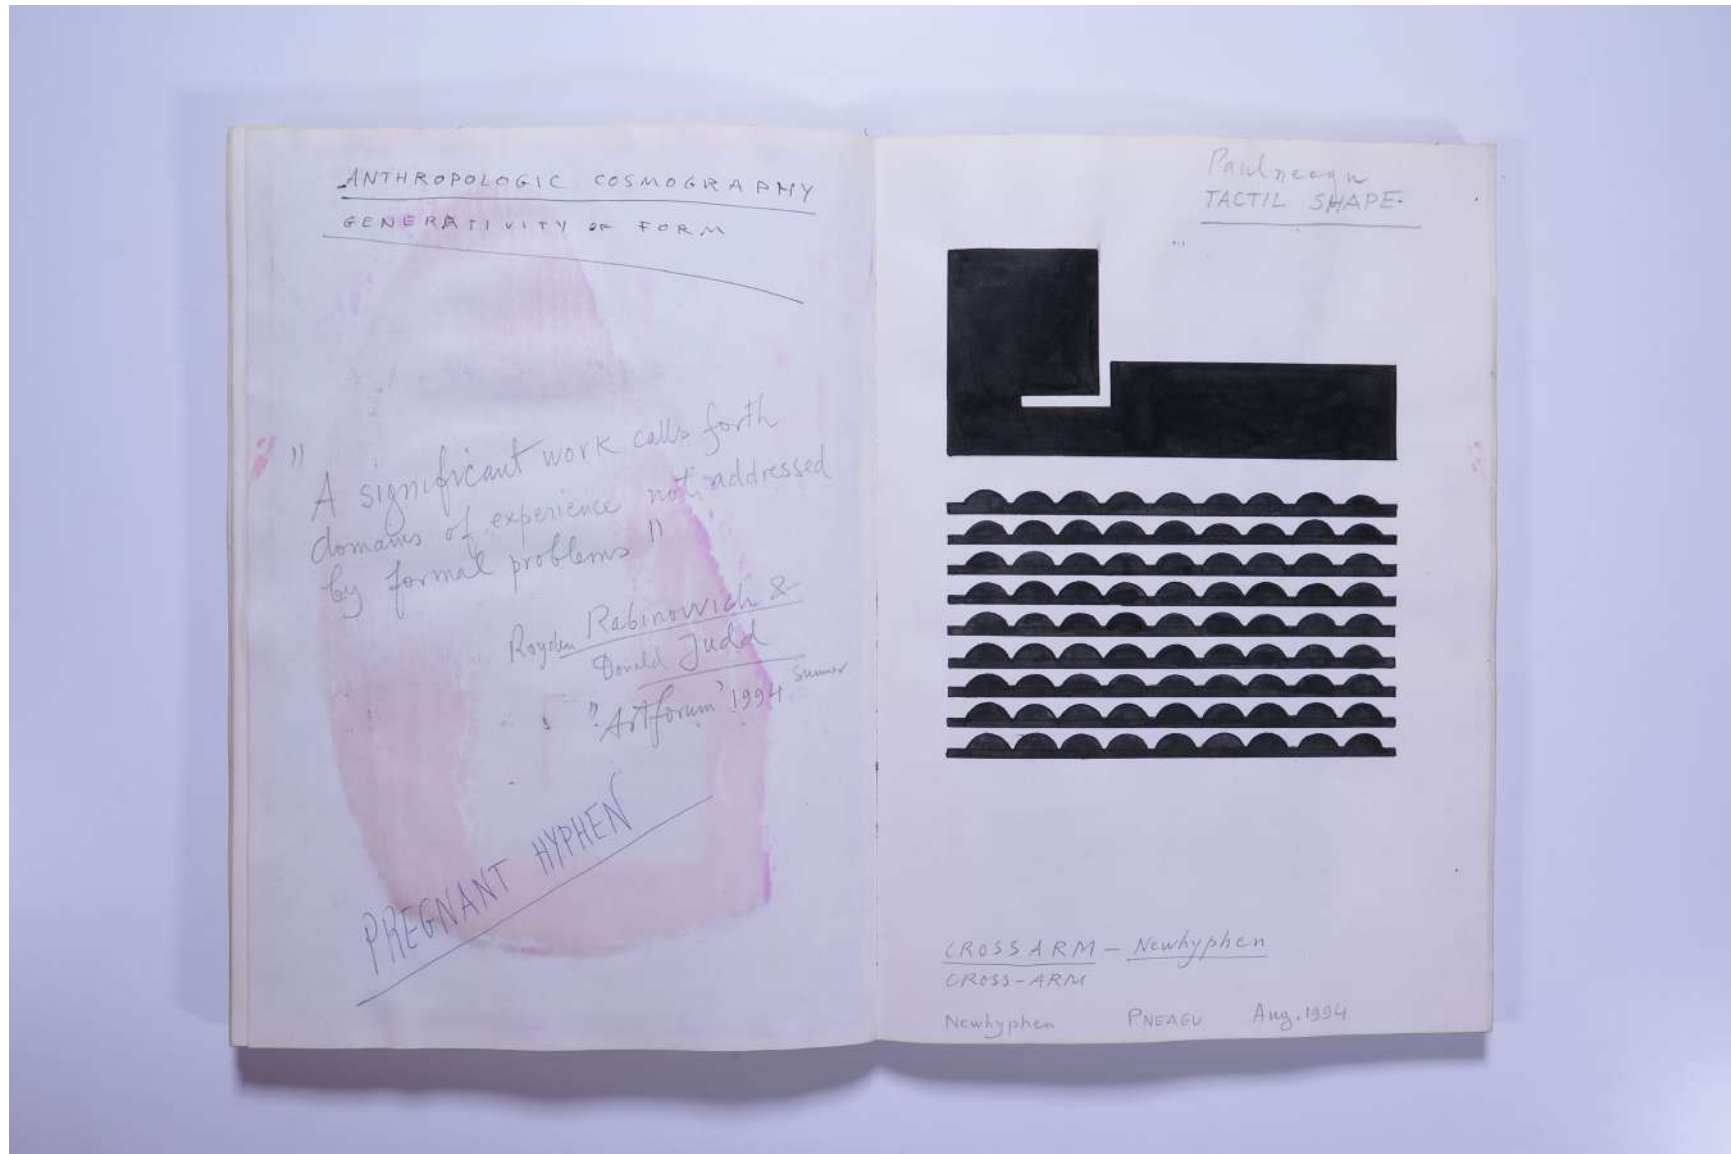 ANTHROPOLOGIC COSMOGRAPHY
GENERATIVITY OF FORM
"
A significant work calls forth
domains of experience not addressed
by formal problems "
Royden Rabinowich &
Donald Judd
"Artforum" 1994 Summer
PREGNANT HYPHEN
Paul neagu
TACTIL SHAPE.
CROSSARM - Newhyphen
CROSS-ARM
Newhyphen P.NEAGU Aug. 1994